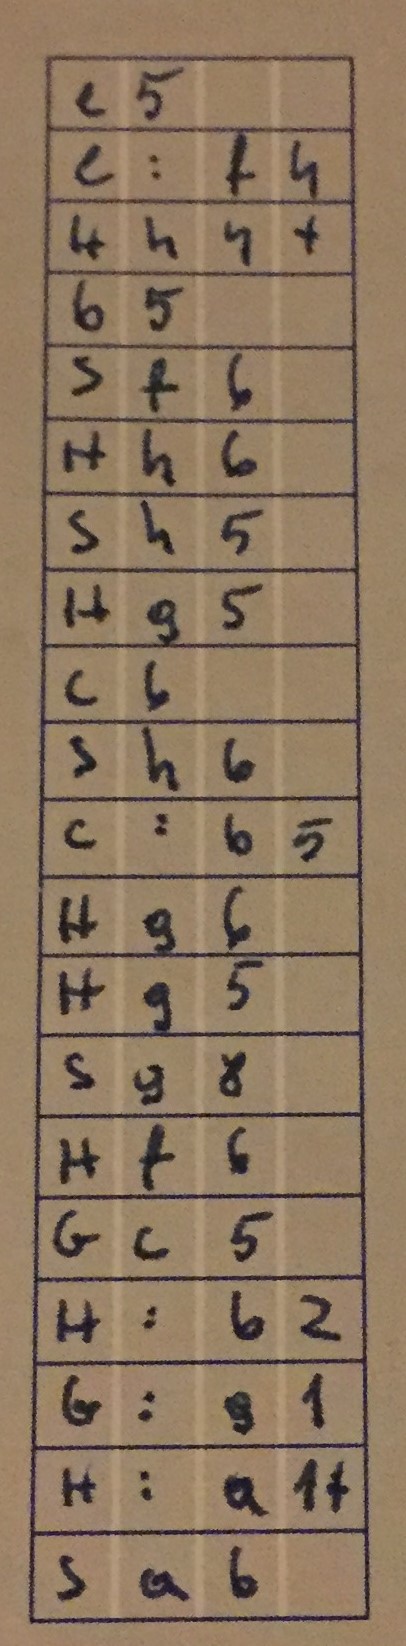 e 5
e : f 4
H h 4 +
b 5
S f 6
H h 6
S h 5
H g 5
c 6
S h 6
c : b 5
H g 6
H g 5
S g 8
H f 6
G c 5
H : b 2
G : g 1
H : a 1+
S a 6